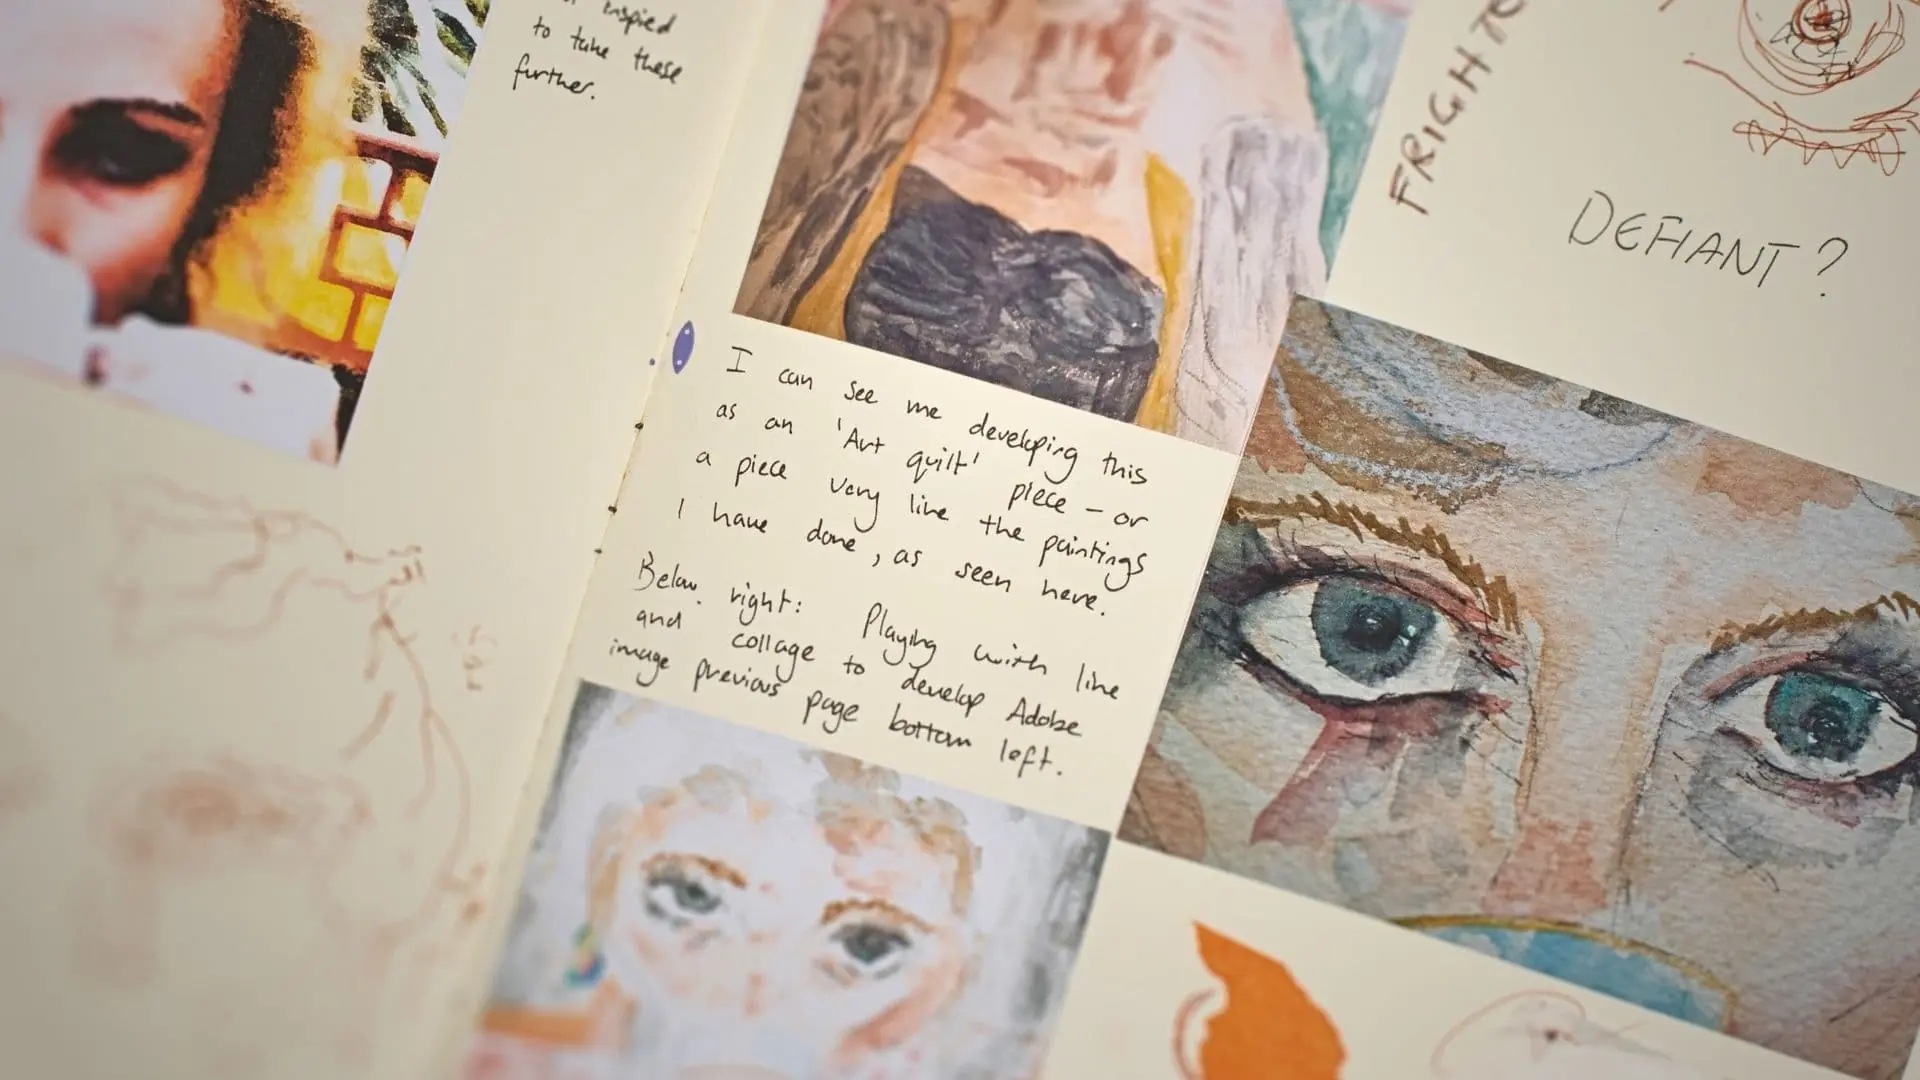 inspied
to take these
further.
I can see me developing this
as an 'Art quilt' piece – or
a piece very like the paintings
I have done, as seen here.
Below right: Playing with line
and collage to develop Adobe
image previous page bottom left.
DEFIANT?